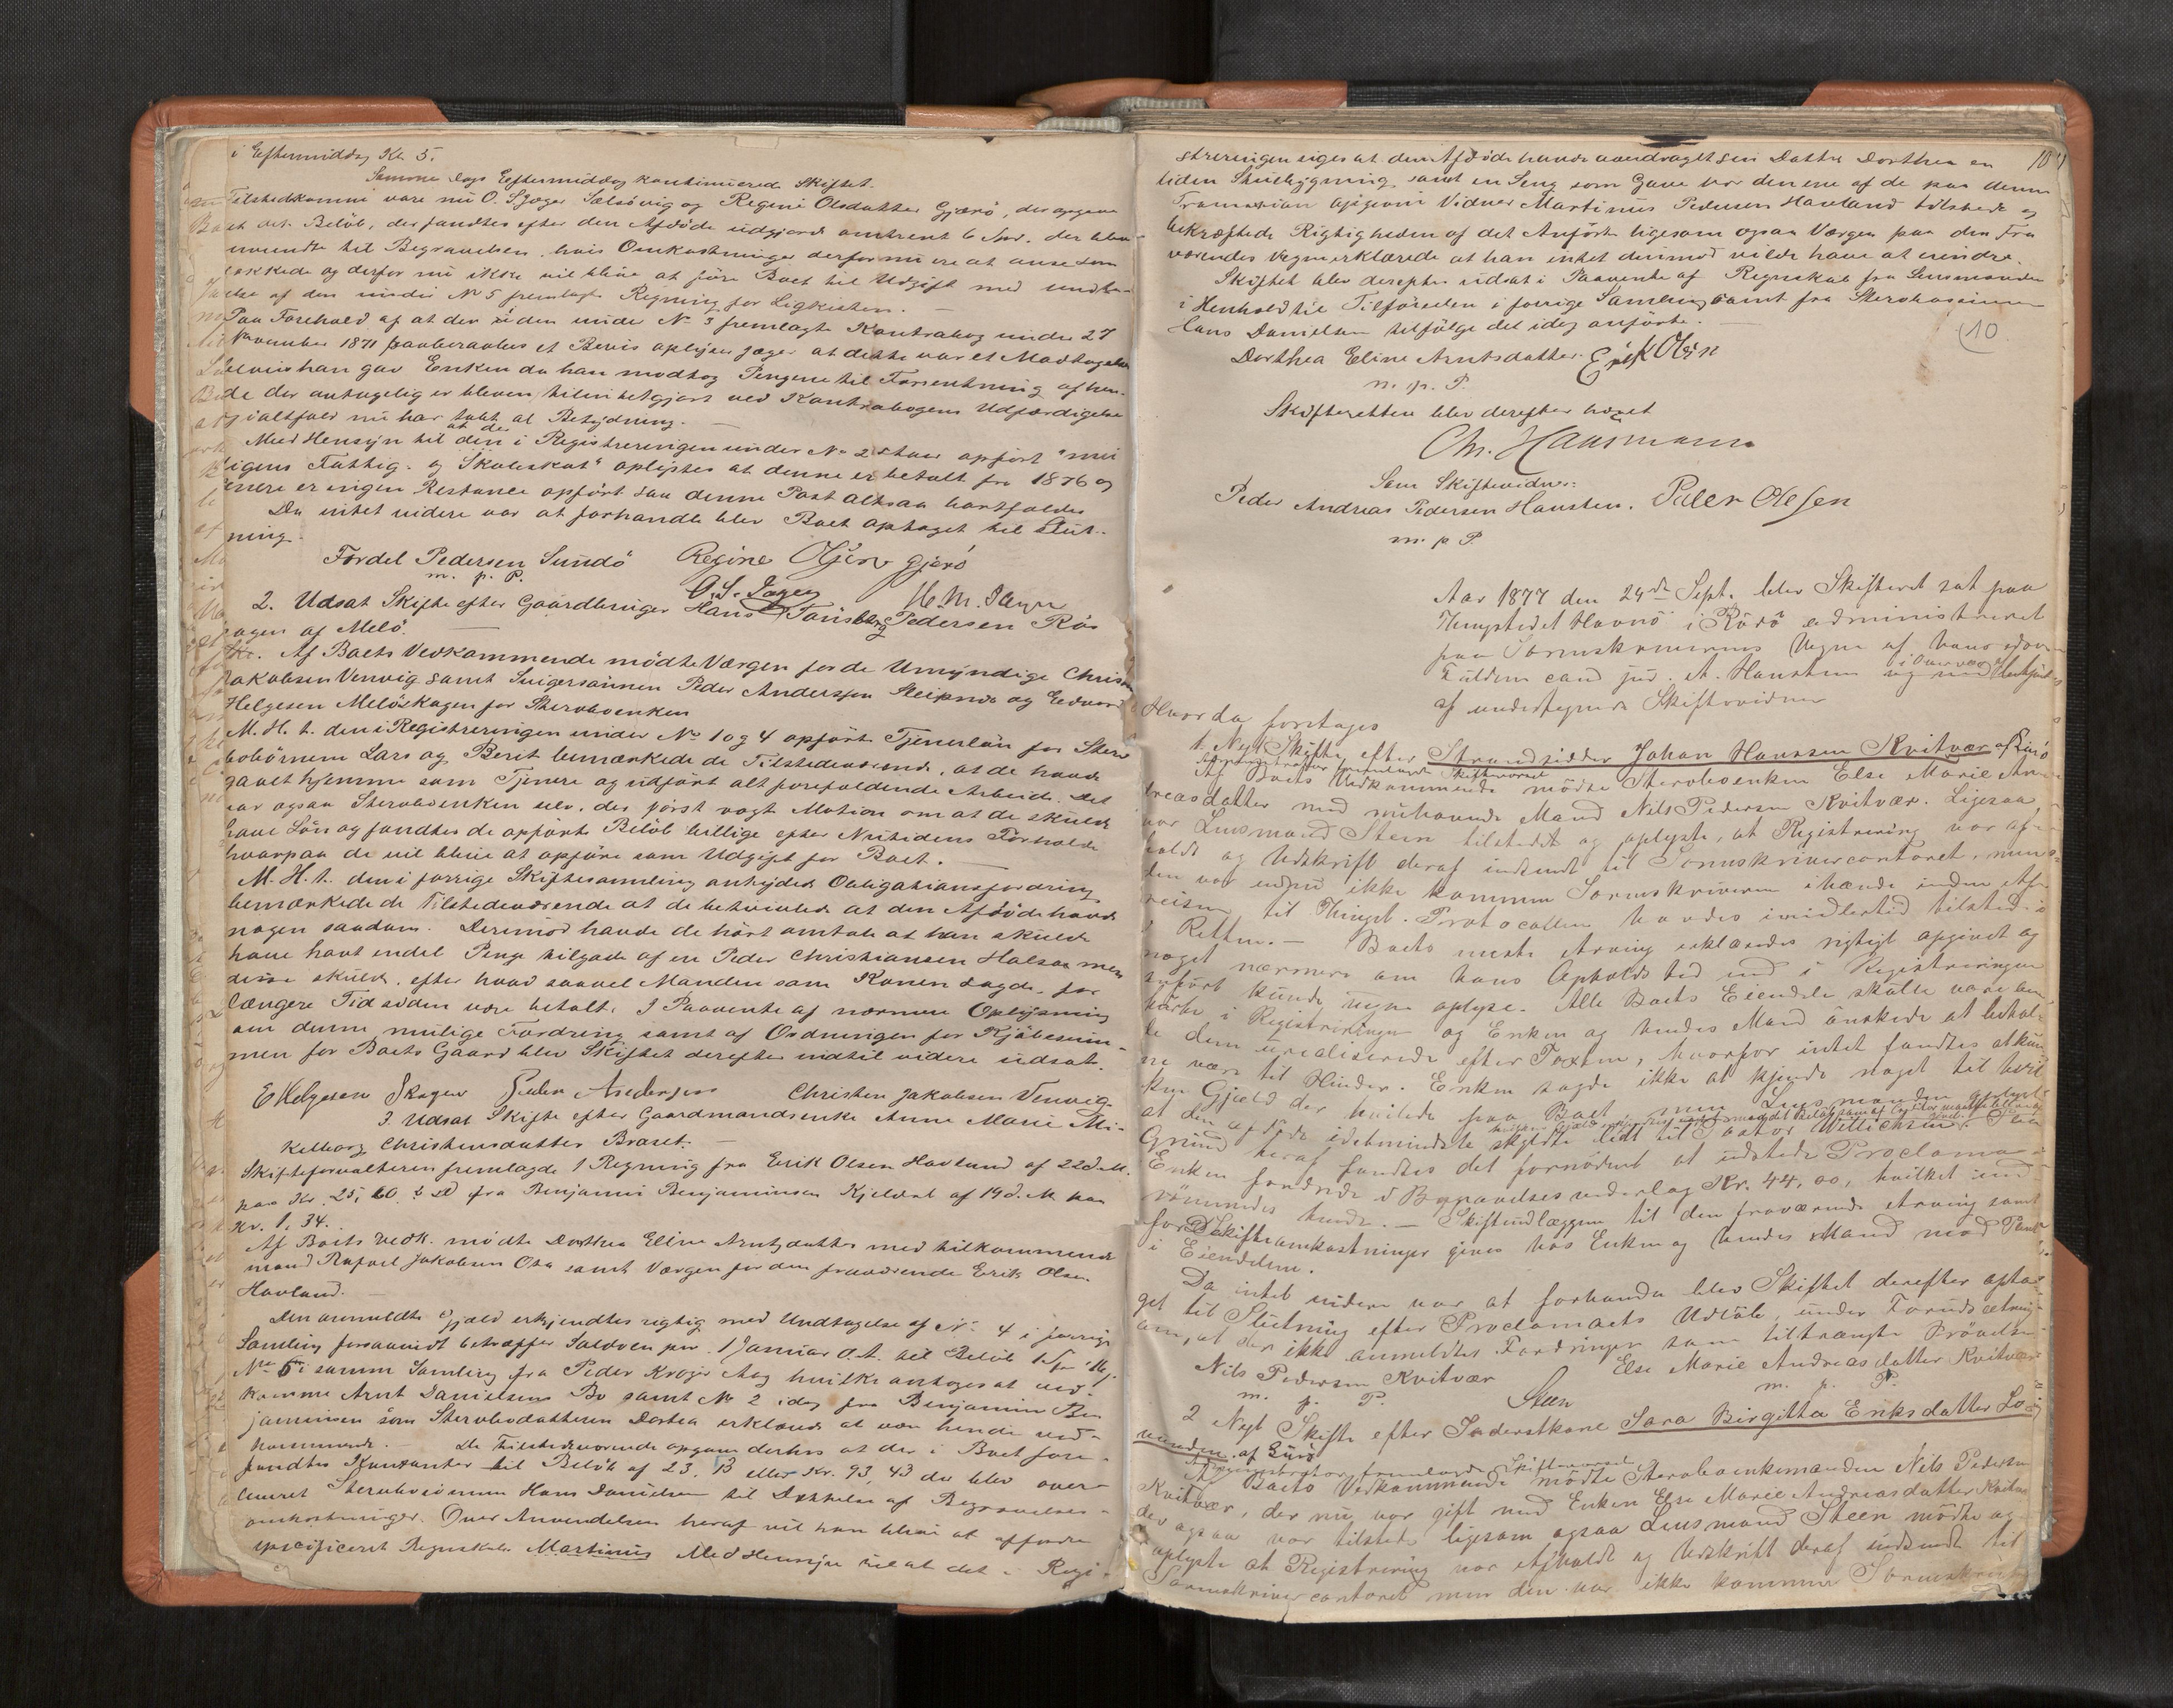 i Eftermiddag Kl. 5.
Samme Dags Eftermiddag kontinuerede Skiftet.
Tilstedkomne vare nu O. S. Jæger Selsøvig og Regine Olsdatter Gjærø, der opgave
at det Beløb, der fandtes efter den Afdøde udgjorde omtrent 6 Spd. der blev
anvendte til Begravelsen, hvis Omkostninger derfor nu ere at anse som
dækkede og derfor nu ikke vil blive at føre Boet til Udgift med Undta-
gelse af den under No 5 fremlagte Regning for Ligkisten. —
Paa Forehold af at der siden under No 3 fremlagte Kontrabog under 27
November 1871 paaberaabes et Bevis oplyser Jæger at dette var et Modtagelses
bevis han gav Enken da han modtog Pengene til Forrentning af hen-
de der antagelig er bleven tilintetgjort ved Kontrabogens Udfærdigelse
og ialtfald nu har tabt al Betydning. —
at de
Med Hensyn til den i Registreringen under No 2 staar opført "mu
ligens Fattig- og Skoleskat" oplystes at denne er betalt for 1876 og
senere er ingen Restance opført saa denne Post altsaa bortfalder
Da intet videre var at forhandle blev Boet optaget til Slut-
ning.
Fordel Pedersen Sundø Regine Olsen Gjerø
m. p. P.
O. S. Jæger
2. Udsat Skifte efter Gaardbruger Hans Tønsberg Pedersen Røs
hagen af Melø.
Af Boets Vedkommende mødte Værgen for de Umyndige Christen
Jakobsen Venvig samt Svigersønnen Peder Andersen Sleipnes og Edvard
Helgesen Meløskagen for Stervboenken
M. H. t. den i Registreringen under No 1 og 4 opførte Tjenerløn for Sterv
bobørnene Lars og Berit bemærkede de Tilstedeværende, at de havde
gaaet hjemme som Tjenere og udført alt forefaldende Arbeide. Det
var ogsaa Stervboenken selv, der først vagte Motion om at de skulde
have Løn og fandtes de opførte Beløb billige efter Nutidens Forholde
hvorpaa de vil blive at opføre som Udgift for Boet. —
M. H. t. den i forrige Skiftesamling antydede Obligationsfordring
bemærkede de Tilstedeværende at de betvivlede at den Afdøde havde
nogen saadan. Derimod havde de hørt omtale at han skulde
have havt endel Penge tilgode af en Peder Christiansen Halsaa men
disse skulde, efter hvad saavel Manden som Konen sagde, for
længere Tid siden være betalt. I Paavente af nærmere Oplysning
om denne mulige Fordring samt af Ordningen for Kjøbesum-
men for Boets Gaard blev Skiftet derefter indtil videre udsat.
E Helgesen Skagen Peder Andersen Christen Jakobsen Venvig
3. Udsat Skifte efter Gaardmandsenke Anne Marie Mi-
kelborg Christensdatter Braset. —
Skifteforvalteren fremlagde 1 Regning fra Erik Olsen Havland af 22 d. M.
paa Kr. 25, 60. fra Benjamin Benjaminsen Kjeldal af 19 d. M. paa
Kr. 1, 34.
Af Boets Vedk. mødte Dorthea Eline Arntsdatter med tilkommende
mand Rafael Jakobsen Osa samt Værgen for den fraværende Erik Olsen
Havland. —
Den anmeldte Gjæld erkjendtes rigtig med Undtagelse af No 4 i forrige
Samling forsaavidt betræffer Saldoen pr. 1 Januar d. A. til Beløb
No 6 i samme Samling fra Peder Krøger Aag hvilke antoges at ved-
komme Arnt Danielsens Bo samt No 2 idag fra Benjamin Ben
jaminsen som Stervbodatteren Dorthea erklærede at være hende ved-
kommende. — De Tilstedeværende opgave derhos at der i Boet fore-
fandtes Kontanter til Beløb af 23. 13 eller Kr. 93, 43 der blev over-
leveret Stervbosønnen Hans Danielsen til Dækkelse af Begravelses-
omkostninger. Over Anvendelsen heraf vil han blive at affordre
specificeret Regnskab. Martinus Med Hensyn til at det i Regi-
streringen siges at den Afdøde havde overdraget sin Datter Dorthea en
107
liden Stuebygning samt en Seng som Gave var den ene af de paa denne
Transaktion opgivne Vidner Martinus Pedersen Havland tilstede og
bekræftede Rigtigheden af det Anførte ligesom ogsaa Værgen paa den Fra
værendes Vegne erklærede at han intet derimod vilde have at erindre.
Skiftet blev derefter udsat i Paavente af Regnskab fra Lensmanden
i Henhold til Tilførselen i forrige Samling samt fra Stervbosønnen
Hans Danielsen tilfølge det idag anførte. —
10
Dorthea Eline Arntsdatter. Erik Olsen
m. p. P.
Skifteretten blev derefter hævet
Chr. Hansmann
Som Skiftevidner:
Peder Andreas Pedersen Haugsten. Peder Olesen
m. p. P.
Aar 1877 den 24de Sept. blev Skifteret sat paa
Thingstedet Havnø i Rødø administreret
paa Sorenskriverens Vegne af hans edsv.
Fuldm. cand. jur. A. Hanssen i Overvær
af undertegnede Skiftevidner
Hvorda foretoges
1. Nyt Skifte efter Strandsidder Johan Hanssen Kvitvær af Lurø
Administrator fremlagde Skiftevarsel
Af Boets Vedkommende mødte Stervboenken Else Marie An-
dreasdatter med nuhavende Mand Nils Pedersen Kvitvær. Ligesaa
var Lensmand Steen tilstede og oplyste, at Registrering var af-
holdt og Udskrift deraf indsendt til Sorenskrivercontoret, men
den var endnu ikke kommen Sorenskriveren ihænde inden Af-
reisen til Thinget. Protocollen havdes imidlertid tilstede i
Retten. — Boets næste Arving erklæredes rigtigt opgivet og
noget nærmere om hans Opholdssted end i Registreringen
anført kunde ingen oplyse. Alle Boets Eiendele skulle være an-
førte i Registreringen og Enken og hendes Mand ønskede at behol-
de dem urealiserede efter Taxten, hvorfor intet fandtes at kun-
ne være til Hinder. Enken sagde ikke at kjende noget til hvil-
ken Gjæld der hvilede paa Boet men Lensmanden oplyste
at den afdøde idetmindste skyldte lidt til Pastor Wittichsen. Paa
Grund heraf fandtes det fornødent at udstede Proclama.
Enken fordrede i Begravelsesvederlag Kr. 44,00, hvilket ind-
rømmedes hende. — Skifteudlæggene til den fraværende Arving samt
for Skifteomkostninger gives hos Enken og hendes Mand mod Pant
i Eiendelene.
Da intet videre var at forhandle blev Skiftet derefter opta-
get til Slutning efter Proclamaets Udløb, under Forudsætning
om, at der ikke anmeldtes Fordringer som tiltrængte Prøvelse.
Nils Pedersen Kvitvær Else Marie Andreasdatter Kvitvær
m. p. P. Steen m. p. P.
2 Nyt Skifte efter Inderstkone Sara Birgitta Eriksdatter Lo-
vunden af Lurø
Administrator fremlagde Skiftevarsel
Af Boets Vedkommende mødte Stervboenkemanden Nils Pedersen
Kvitvær, der nu var gift med Enken Else Marie Andreasdatter Kvitvær
der ogsaa var tilstede ligesom ogsaa Lensmand Steen mødte og
oplyste at Registrering var afholdt og Udskrift deraf indsendt til
Sorenskrivercontoret men den var ikke kommen Sorenskriver